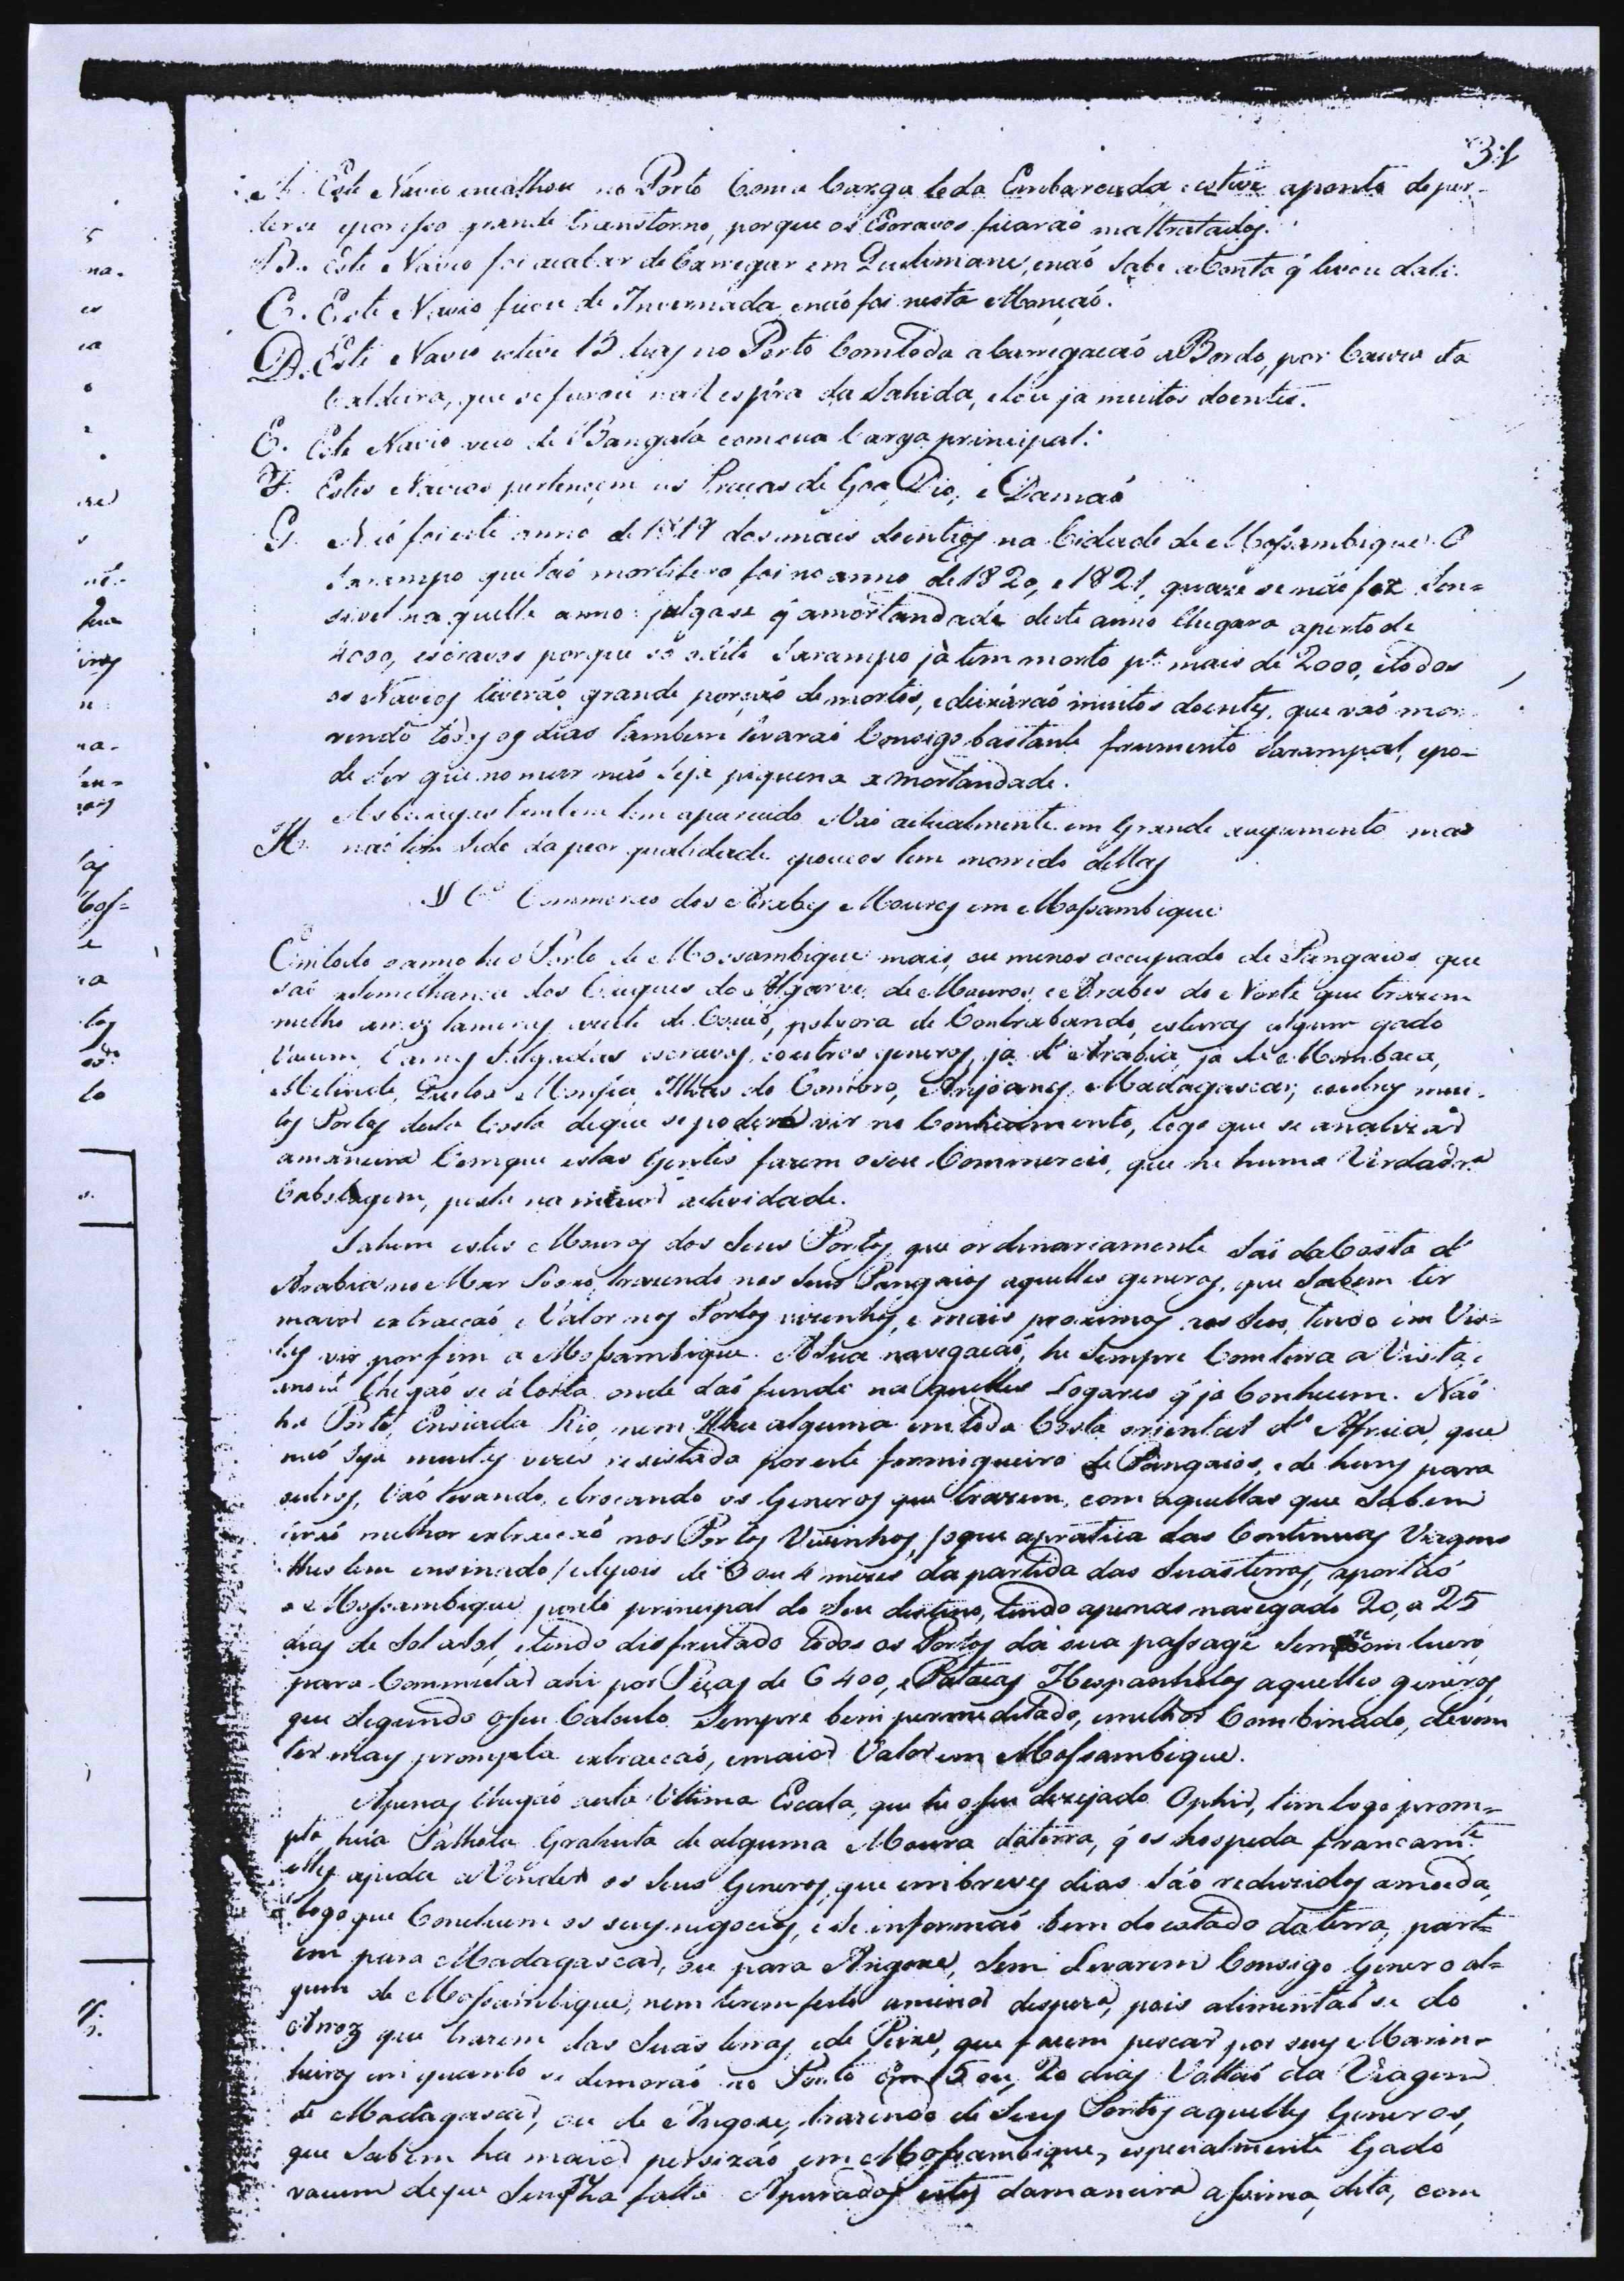 31
A. Este Navio encalhou no Porto Com a Carga toda Embarcada, esteve aponto deper-
derse eporisso grande transtorno, porque os Escravos ficarão maltratados.
B. Este Navio foi acabar de Carregar em Quilimane, enaõ Sabe aConta q̃ levou dali.
C. Este Navio ficou de Invernada enaõ foi nesta Monçaõ.
D. Este Navio esteve 15 dias no Porto Comtoda aCarregacaõ aBordo, por Causa da
Caldeira, que se furou na Vespora da Sahida, edeu ja muitos doentes.
E. Este Navio veio de Bangala comsua Carga principal.
F. Estes Navios pertencem as Pracas de Goa, Dio, e Damaõ
G. Naõ foi este anno de 1819 dos mais doentios na Cidade de Mossambique. O
Sarampo que taõ mortifero foi no anno de 1820, e 1821, quaze se naõ fez Sen=
sivel naquelle anno: julgase q̃ amortandade deste anno Chegara aperto de
4000, escravos porque só oxité Sarampo jà tem morto pª mais de 2000, etodos
os Navios tiveraõ grande porçaõ de mortos, edeixáraõ muitos doentes, que vaõ mor-
rendo todos os dias tambem levaraõ Consigo bastante fermento Sarampal, epo-
de Ser que no mar naõ Seja piquena a mortandade.
H. As bexigas tambem tem aparecido Vaõ actualmente em Grande augumento mas
naõ tem Sido da peor qualidade epoucos tem morrido dellas
Commercio dos Arabes Mouros em Mossambique
Em todo o anno he o Porto de Mossambique mais, ou menos occupado de Pangaios que
saõ asemelhança dos Caiques do Algarve, de Mouros, e Arabes do Norte que trazem
milho arroz tamaras azeite de Couco, polvora de Contrabando, esteiras algum gado
Vacum, Carnes Salgadas escravos, eoutros generos, ja d'Arabia, ja de Mombaca,
Melinde, Quiloa Monfia, Ilhas do Comoro, Anjoanes, Madagascar, eoutros mui-
tos Portos desta Costa deque sepoderá vir no Conhecimento, logo que se analizar
amaneira Comque estas Gentes fazem oseu Commercio, que he huma Verdadrª
Cabotagem, posta na maior actividade.
Sahem estes Mouros dos Seus Portos, que ordinariamente Saõ daCosta d'
Arabia no Mar Roxo, trazendo nos Seus Pangaios aquelles generos, que Sabem ter
maior extraccaõ, e Valor nos Portos vizinhos, e mais proximos aos Seus, tendo em Vis=
tas vir porfim a Mossambique. ASua navegacaõ, he Sempre Comterra aVista, e
Chegaõ se áCosta onde daõ fundo naquelles Logares q̃ ja Conhecem. Naõ
ha Porto, Enseada Rio, nem Ilha alguma em toda Costa oriental d'Africa, que
naõ Seja muitas vezes revistada por este formigueiro de Pangaios, e de huns para
outros, Vaõ levando, etrocando os Generos que trazem, com aquellas que Sabem
teraõ melhor extraccaõ nos Portos Vizinhos, /oque apratica das Continuas Viagens
lhes tem ensinado/ edepois de 3 ou 4 mezes da partida das Suasterras, aportaõ
a Mossambique ponto principal do Seu destino, tendo apenas navegado 20, a 25
dias de Sol aSol, etendo disfrutado todos os Portos da sua passagẽ Sempre com lucro
para Commutar ahi por Peças de 6400, e Patacas Hespanholas aquelles generos,
que Segundo oseu Calculo Sempre bem permeditado, emelhor Combinado, devem
ter mais prompta extraccaõ, emaior Valor em Mossambique.
Apenas Chegaõ aesta Ultima Escala, que he oseu dezejado Ophir, tem logo prom=
pta huã Palhota Gratuita de alguma Moura daterra, q̃ os hospeda francamte
elhes ajuda aVender os Seus Generos, que embreves dias Saõ reduzidos amoeda,
logo que Concluem os seus negocios, e Se informaõ bem do estado da terra, part=
em para Madagascar, ou para Angoxe, Sem Levarem Consigo Genero al=
gum de Mossambique, nem terem feito amenor despeza, pois alimentaõ se do
Arroz que trazem das Suas terras, ede Peixe, que fazem pescar por seus Marin-
heiros em quanto se demoraõ no Porto Em 15 ou 20 dias Voltaõ da Viagem
de Madagascar, ou de Angoxe, trazendo de Seus Portos aquelles Generos,
que Sabem ha maior percizaõ em Mossambique, especialmente Gado
vacum deque Sempre ha falta. Apurados estes damaneira assima dita, com